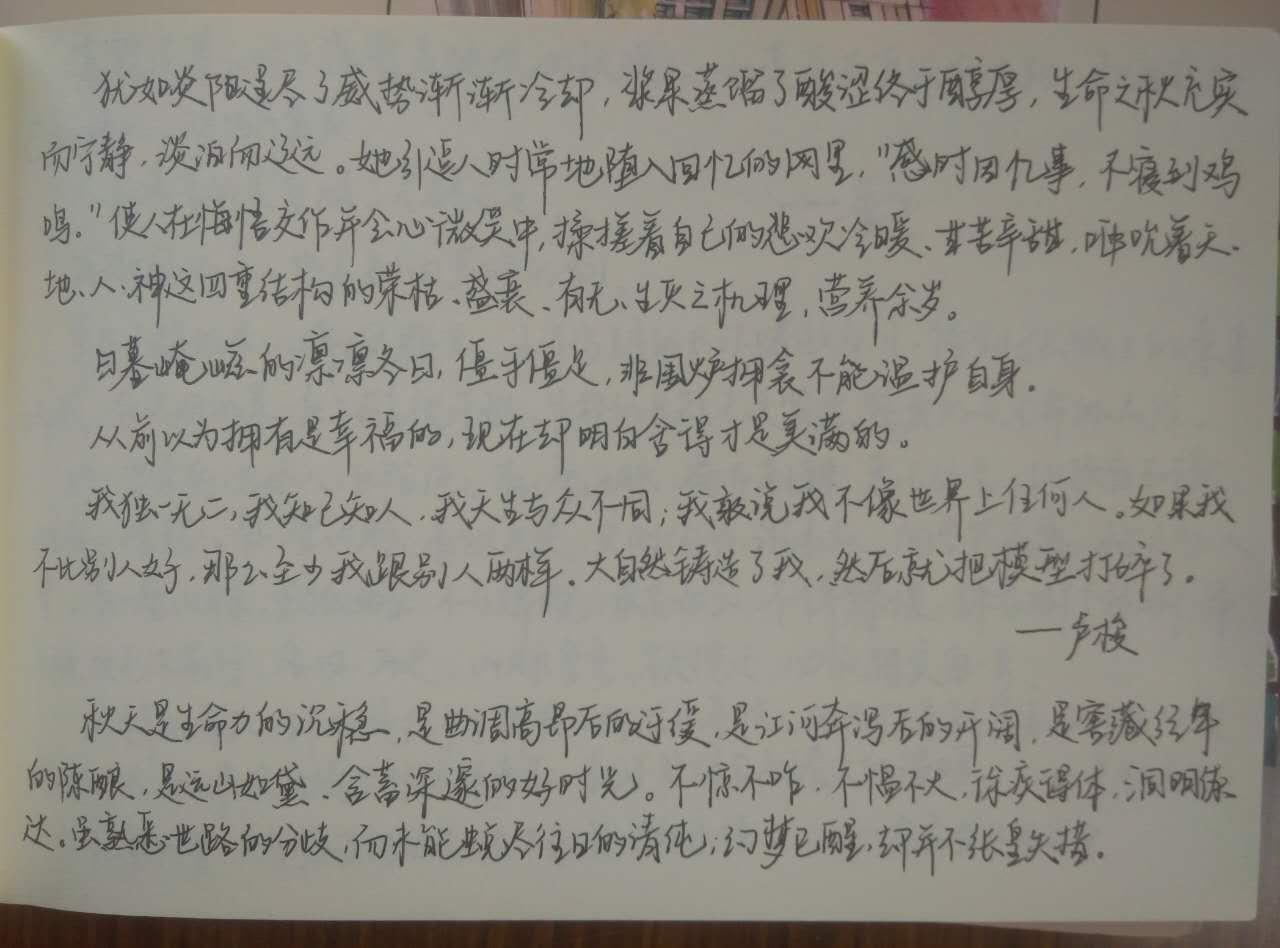 犹如炎阳逞尽了威势渐渐冷却，浆果蒸馏了酸涩终于醇厚，生命之秋充实
而宁静，淡泊而辽远。她引逗人时常地堕入回忆的网里，"感时因忆事，不寝到鸡
鸣。"使人在悔悟交作并会心微笑中，揉搓着自己的悲欢冷暖、甘苦辛甜，呻吟着天、
地、人、神这四重结构的荣枯、盛衰、有无、生灭之机理，营养余岁。
日暮崦嵫的凛凛冬日，僵手僵足，非围炉拥衾不能温护自身。
从前以为拥有是幸福的，现在却明白舍得才是美满的。
我独一无二，我知己知人，我天生与众不同；我敢说我不像世界上任何人。如果我
不比别人好，那么至少我跟别人两样。大自然铸造了我，然后就把模型打碎了。
——卢梭
秋天是生命力的沉稳，是曲调高昂后的纡缓，是江河奔泻后的开阔，是窖藏经年
的陈酿，是远山如黛、含蓄深邃的好时光。不惊不咋，不愠不火，徐疾得体，洞明练
达。虽熟悉世路的分歧，而未能蜕尽往日的清纯；幻梦已醒，却并不张皇失措。